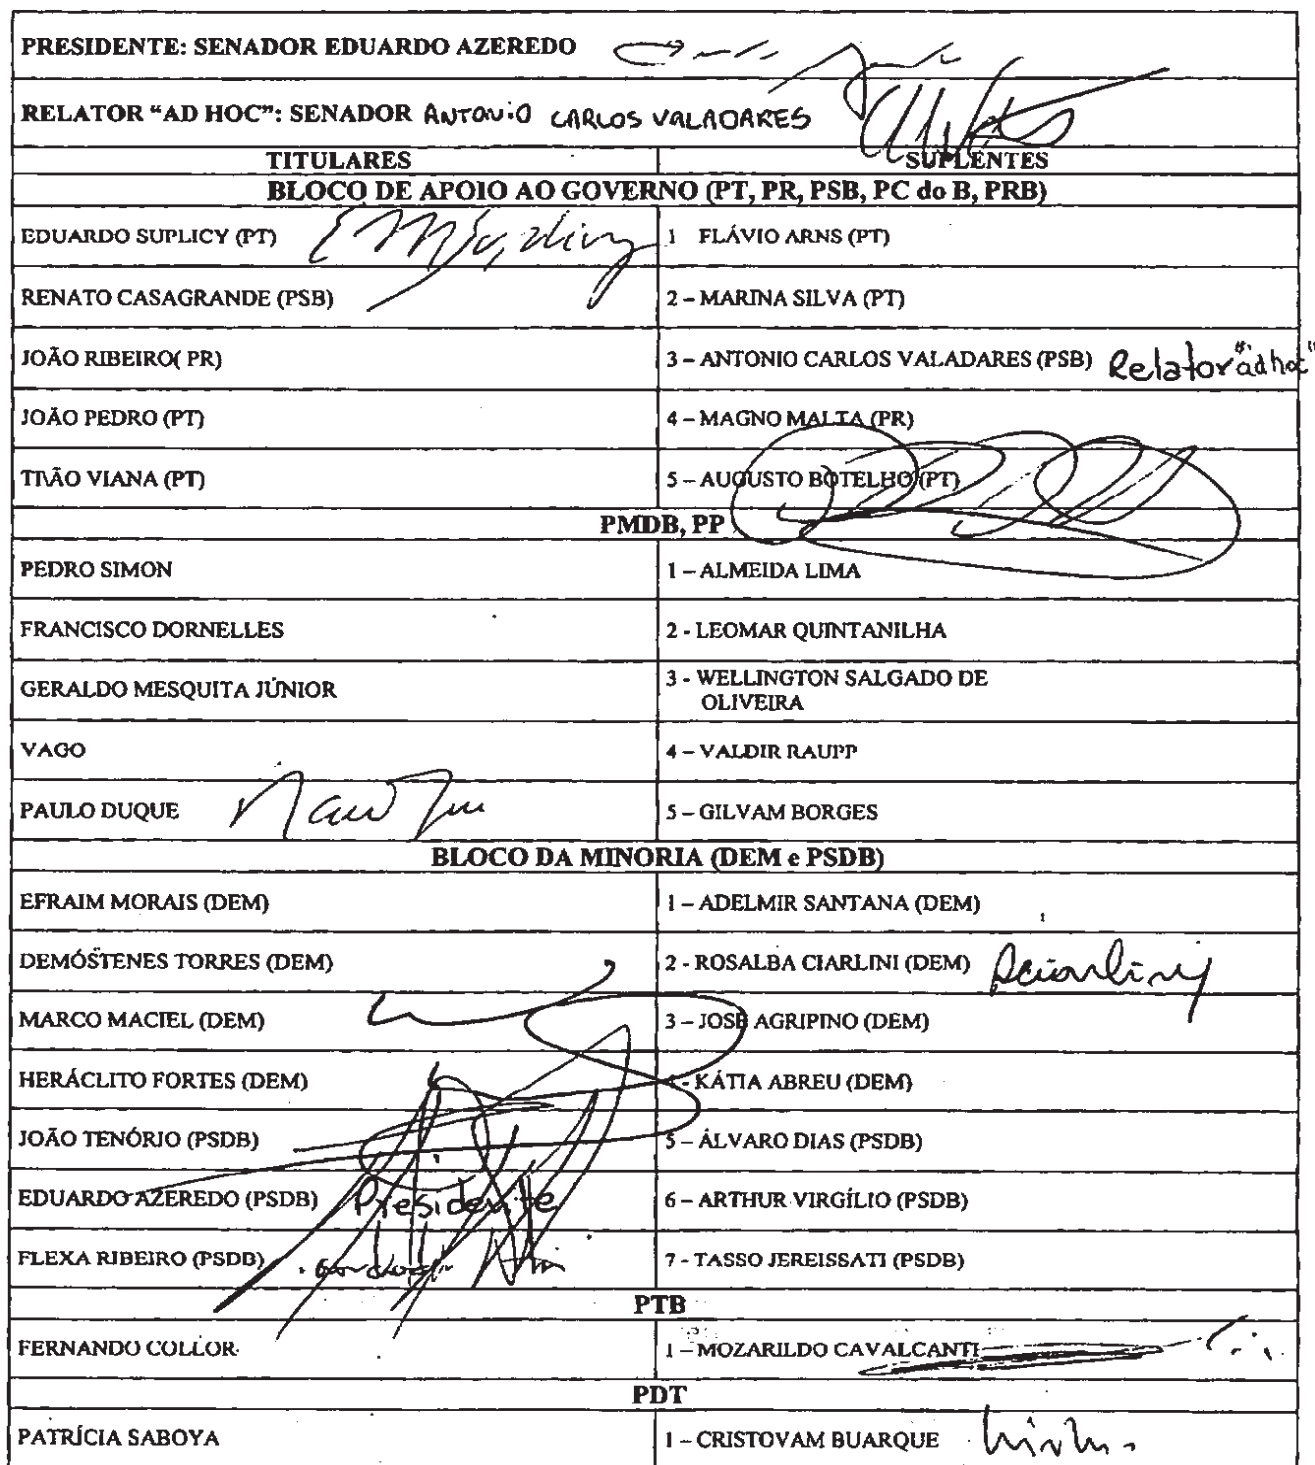 PRESIDENTE: SENADOR EDUARDO AZEREDO
RELATOR "AD HOC": SENADOR ANTONIO CARLOS VALADARES
TITULARES SUPLENTES
BLOCO DE APOIO AO GOVERNO (PT, PR, PSB, PC do B, PRB)
EDUARDO SUPLICY (PT) 1 FLÁVIO ARNS (PT)
RENATO CASAGRANDE (PSB) 2 – MARINA SILVA (PT)
JOÃO RIBEIRO( PR) 3 – ANTONIO CARLOS VALADARES (PSB) Relator "ad hoc"
JOÃO PEDRO (PT) 4 – MAGNO MALTA (PR)
TIÃO VIANA (PT) 5 – AUGUSTO BOTELHO (PT)
PMDB, PP
PEDRO SIMON 1 – ALMEIDA LIMA
FRANCISCO DORNELLES 2 - LEOMAR QUINTANILHA
GERALDO MESQUITA JÚNIOR 3 - WELLINGTON SALGADO DE
OLIVEIRA
VAGO 4 – VALDIR RAUPP
PAULO DUQUE 5 – GILVAM BORGES
BLOCO DA MINORIA (DEM e PSDB)
EFRAIM MORAIS (DEM) 1 – ADELMIR SANTANA (DEM)
DEMÓSTENES TORRES (DEM) 2 - ROSALBA CIARLINI (DEM) Rciarlini
MARCO MACIEL (DEM) 3 – JOSÉ AGRIPINO (DEM)
HERÁCLITO FORTES (DEM) - KÁTIA ABREU (DEM)
JOÃO TENÓRIO (PSDB) 5 – ÁLVARO DIAS (PSDB)
EDUARDO AZEREDO (PSDB) Presidente 6 – ARTHUR VIRGÍLIO (PSDB)
FLEXA RIBEIRO (PSDB) 7 - TASSO JEREISSATI (PSDB)
PTB
FERNANDO COLLOR 1 – MOZARILDO CAVALCANTI
PDT
PATRÍCIA SABOYA 1 – CRISTOVAM BUARQUE